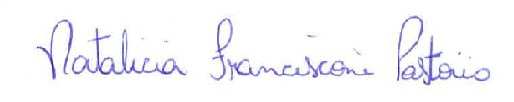 Natalicia Francisconi Pastorio